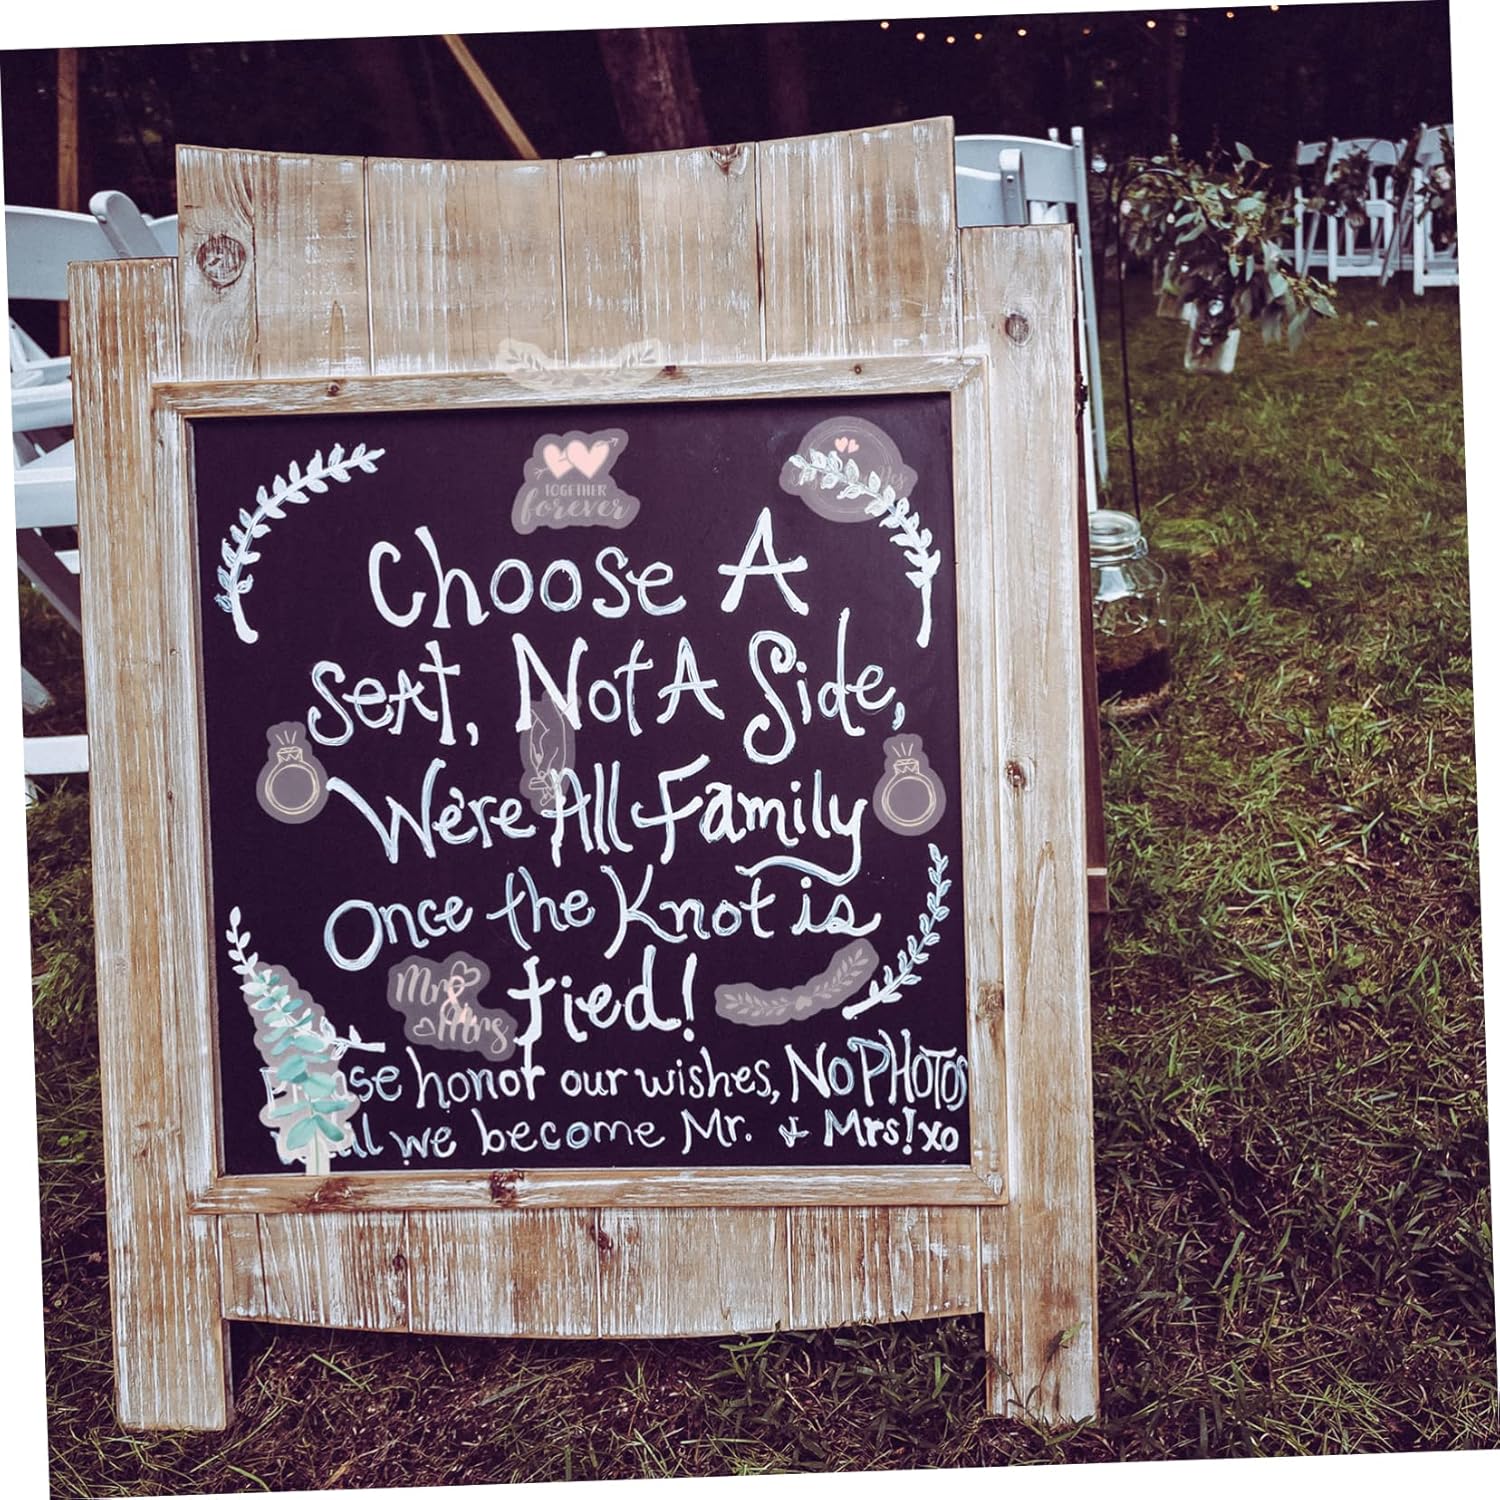 TOGETHER
forever
Choose A
Seat, Not A Side,
We're All Family
Once the Knot is
tied!
Mr &
Mrs
honor our wishes, NO PHOTOS
we become Mr. + Mrs! xo